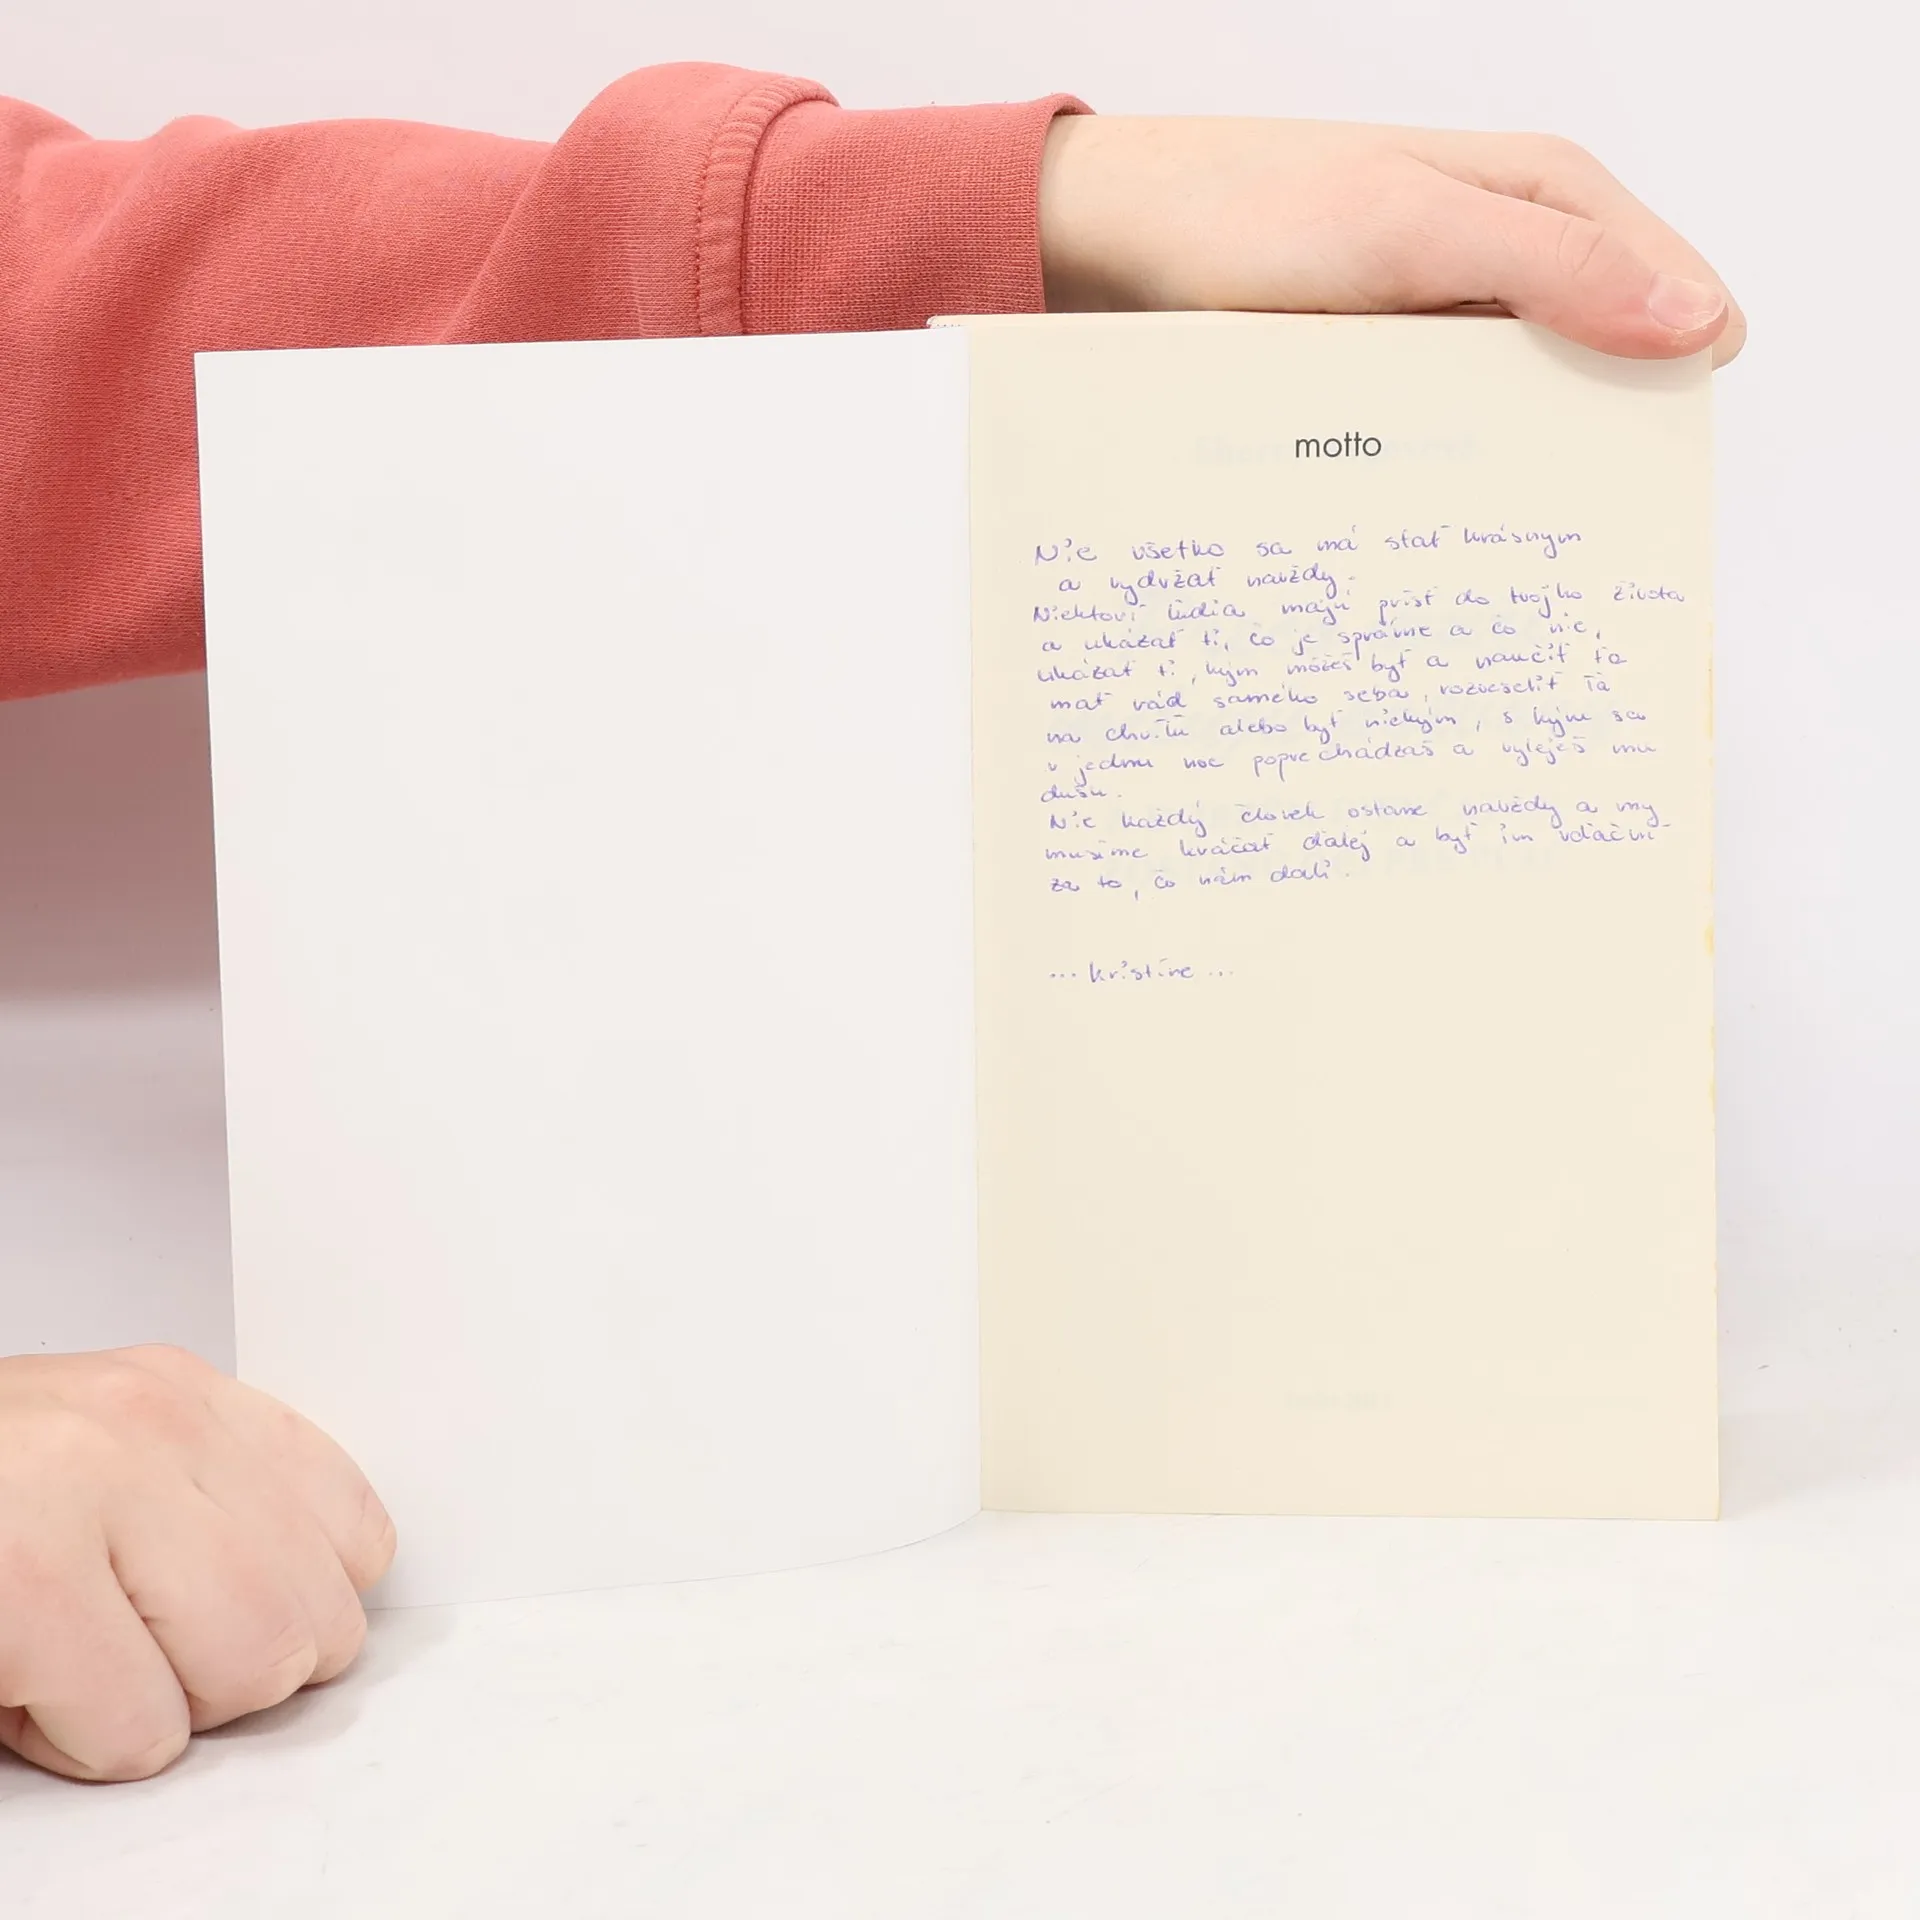 motto
Nie všetko sa má stať krásnym
a vydržať navždy.
Niektorí ľudia majú prísť do tvojho života
a ukázať ti, čo je správne a čo nie,
ukázať ti, kým môžeš byť a naučiť ťa
mať rád samého seba, rozveseliť ťa
na chvíľu alebo byť niekým, s kým sa
v jednu noc poprechádzaš a vyleješ mu
dušu.
Nie každý človek ostane navždy a my
musíme kráčať ďalej a byť im vďační
za to, čo nám dali.
... kristine ...